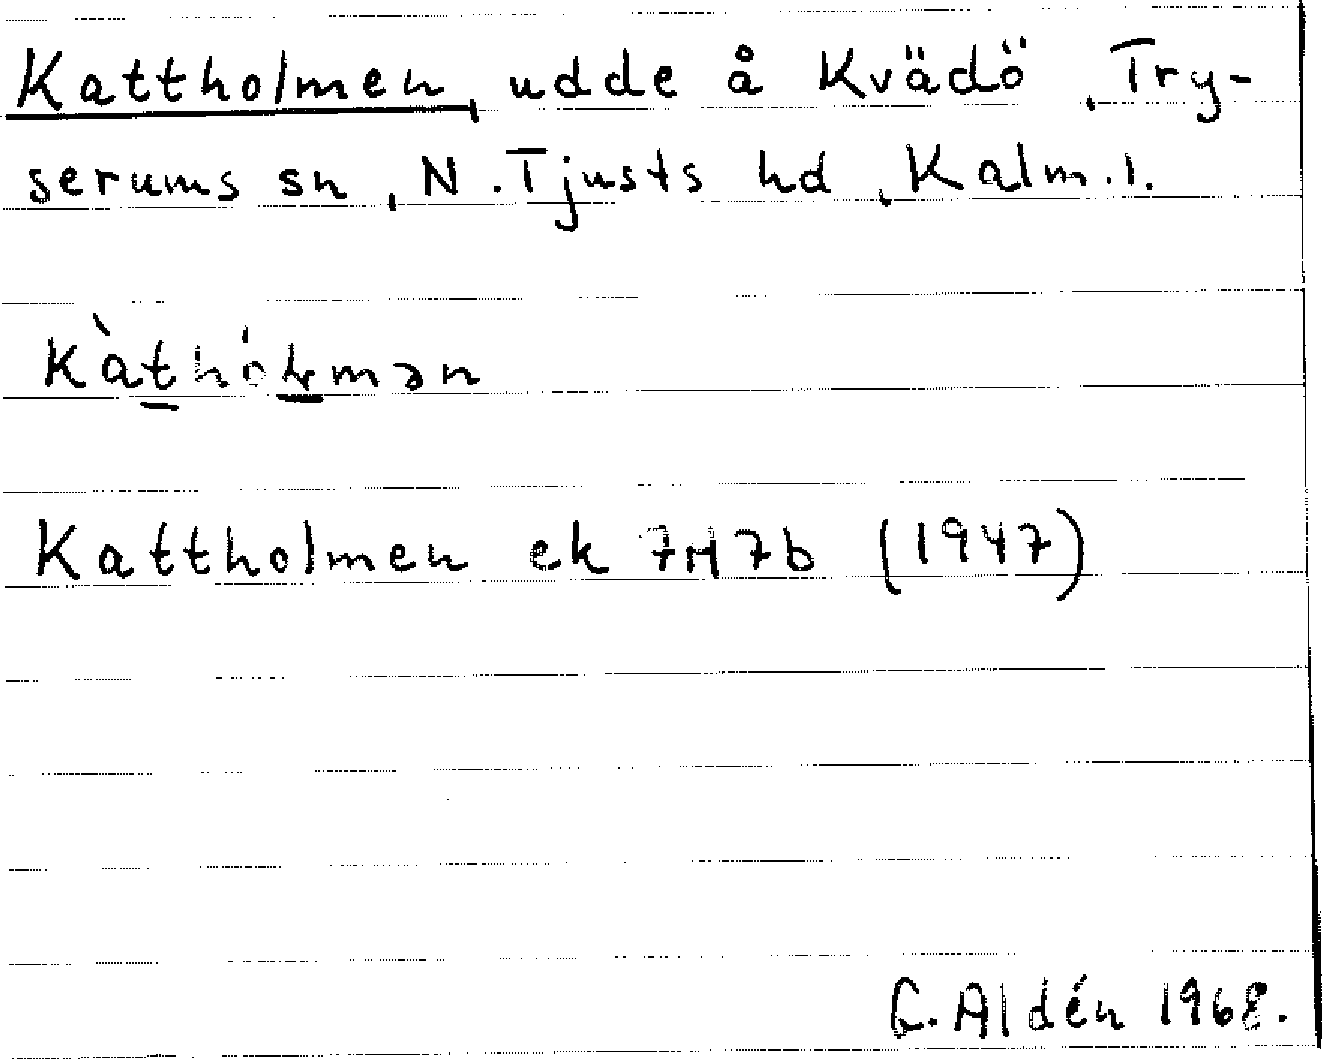 Kattholmen, udde å Kvädö, Try-
serums sn, N. Tjusts hd, Kalm. l.
Kattholmen ek 7H7b (1947)
C. Aldén 1968.